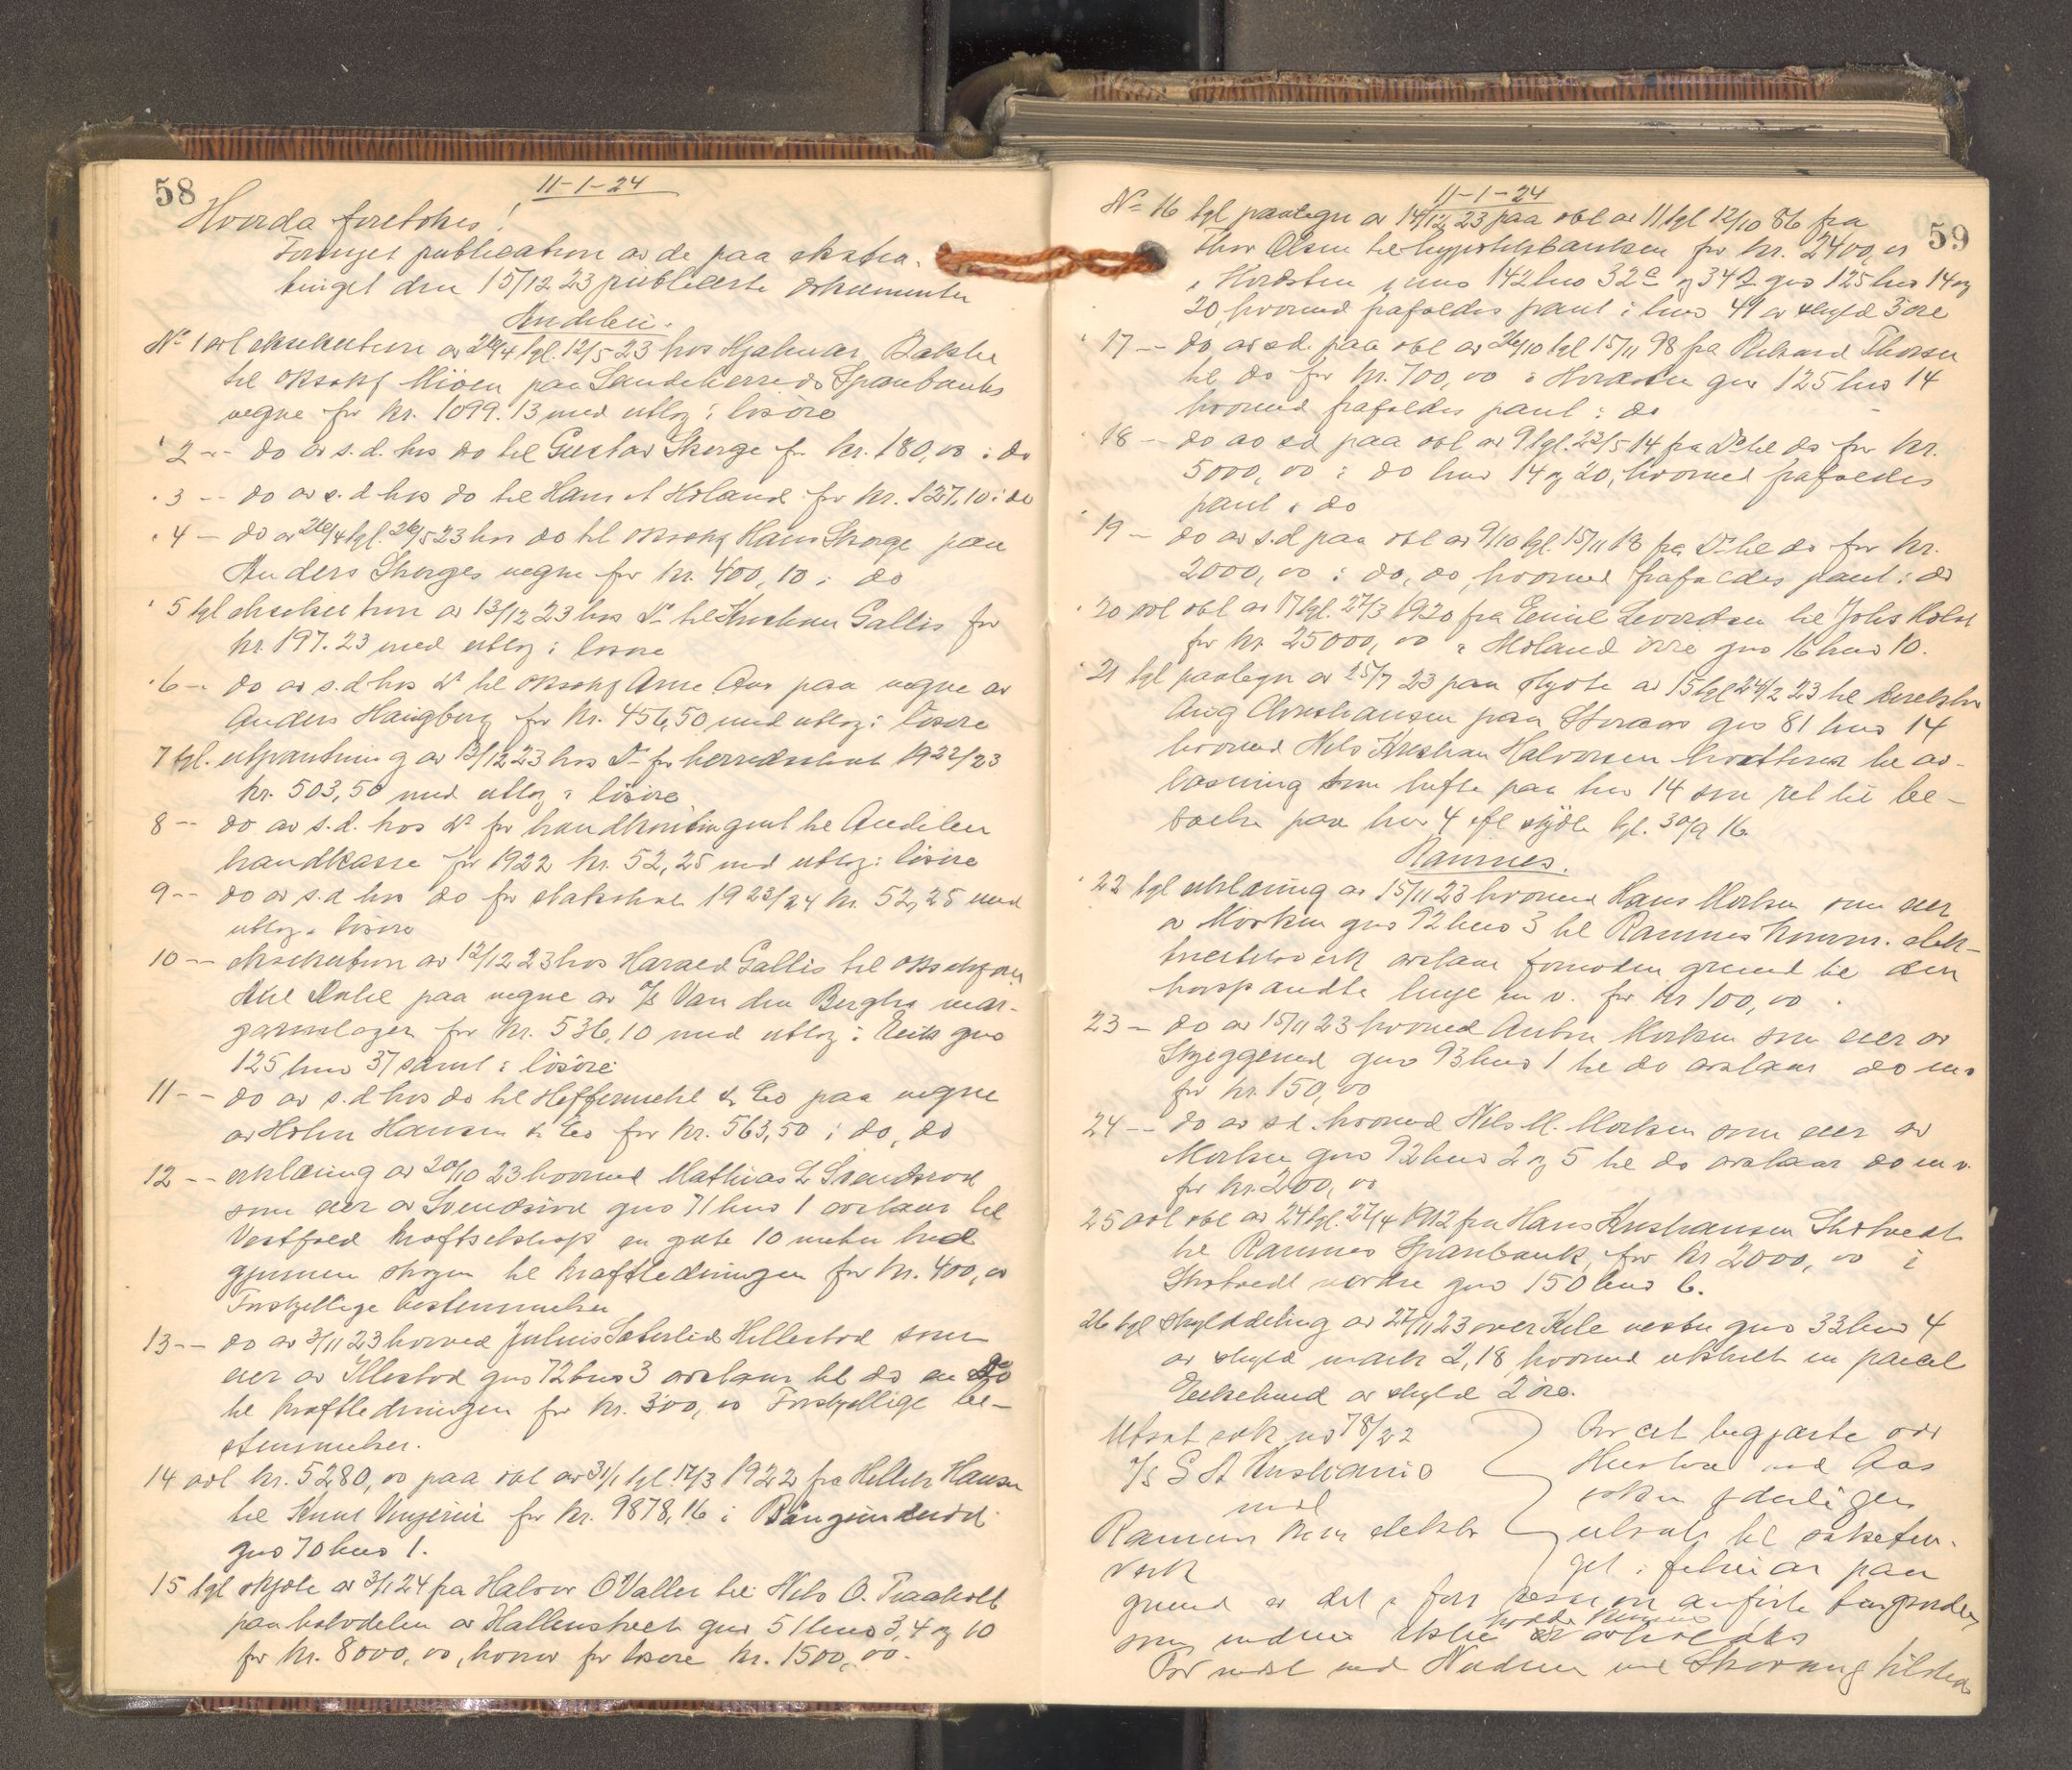 58
11-1-24
Hvorda foretokes!
Forinyet publication av de paa ekstra-
tinget den 15/12 23 publicerte dokumenter
Andebu.
No 1 avl eksekution av 26/4 tgl. 12/5 23 hos Hjalmar Bakke
til oksakf Miøen paa Sandeherreds Sparebanks
vegne for kr. 1099.13 med utlæg i løsøre
2 -- do av s.d. hos do til Gustav Skorge for kr. 180,00 i do
3 -- do av s.d hos do til Hans A Høland for kr. 127,10 i do
4 -- do av 26/4 tgl. 26/5 23 hos do til oksakf Hans Skorge paa
Anders Skorges vegne for kr. 400,10 i do
5 tgl eksekution av 13/12 23 hos Do til Kristian Gallis for
kr. 197.23 med utlæg i løsøre
6 -- do av s.d hos do til oksakf Arne Aas paa vegne av
Anders Haugberg for kr. 456,50 med utlæg i løsøre
7 tgl. utpantning av 13/12 23 hos Do for herredsskat 1922/23
kr. 503,50 med utlæg i løsøre
8 -- do av s.d. hos do for brandkontingent til Andebu
brandkasse for 1922 kr. 52,25 med utlæg i løsøre
9 -- do av s.d hos do for statsskat 1923/24 kr. 52,25 med
utlæg i løsøre
10 -- eksekution av 12/12 23 hos Harald Gallis til oksakf
paa vegne av A/S Van den Berghs mar-
garinlager for kr. 536,10 med utlæg i gno
125 bno 37 samt i løsøre
11 -- do av s.d hos do til Heffermehl & Co paa vegne
av Holm Hansen & Co for kr. 563,50 i do, do
12 -- erklæring av 20/10 23 hvorved Mathias L Svendsrød
som eier av Svendsrød gno 71 bno 1 avstaar til
Vestfold Kraftselskap en gate 10 meter bred
gjennem skogen til kraftledningen for kr. 400,00
Forskjellige bestemmelser
13 -- do av 3/11 23 hvorved Julius Sæterlid Hillestad som
eier av Illestad gno 72 bno 3 avstaar til do en do
til kraftledningen for kr. 300,00 Forskjellige be-
stemmelser.
14 avl kr. 5280,00 paa obl av 31/1 tgl. 17/3 1922 fra Hansen
til Knut for kr. 9878,16 i
gno 70 bno 1.
15 tgl skjøte av 3/1 24 fra Halvor O Valler til Nils O. Traaholt
paa halvdelen av Hallenstvedt gno 51 bno 3, 4 og 10
for kr. 8000,00, hvorav for løsøre kr. 1500,00.
59
11-1-24
No 16 tgl paategn av 14/12 23 paa obl av 11 tgl 12/10 86 fra
Thor Olsen til hypotekbanken for kr. 2400,00
i gno 142 bno 32 og 34 gno 125 bno 14 og
20, hvorved frafaldes pant i bno 41 av skyld 3 øre
17 -- do av s.d. paa obl av 26/10 tgl 15/11 98 fra Rikard Thorsen
til do for kr. 700,00 i gno 125 bno 14
hvorved frafaldes pant i do
18 -- do av sd paa obl av 9 tgl. 23/5 14 fra Do til do for kr.
5000,00 i do bno 14 og 20, hvorved frafaldes
pant i do
19 -- do av s.d paa obl av 9/10 tgl. 15/11 18 fra Do til do for kr.
2000,00 i do, do hvorved frafaldes pant i do
20 avl obl av 17 tgl. 27/3 1920 fra Emil Levordsen til Johs Holst
for kr. 25000,00 i Møland øvre gno 16 bno 10.
21 tgl paategn av 25/7 23 paa skjøte av 15 tgl 24/2 23 til direktør
Aug Christiansen paa gno 81 bno 14
hvorved Nils Kristian Halvorsen til av-
løsning som hefte paa bno 14 som ret til be-
paa bno 4 efl skjøte tgl. 30/9 16
Ramnes.
22 tgl erklæring av 15/11 23 hvorved Hans Morken som eier
av Morken gno 92 bno 3 til Ramnes komm. elek-
tricitetsverk avstaar fornøden grund til den
høispændte linje m v. for kr 100,00.
23 -- do av 15/11 23 hvorved Anton Morken som eier av
gno 93 bno 1 til do avstaar do m v
for kr. 150,00
24 -- do av sd. hvorved Nils M. Morken som eier av
Morken gno 92 bno 2 og 5 til do avstaar do m v.
for kr. 200,00
25 avl obl av 24 tgl. 27/4 1912 fra Hans Kristiansen Skotvedt
til Ramnes Sparebank for kr 2000,00 i
Skotvedt nordre gno 150 bno 6.
26 tgl skylddeling av 27/11 23 over Kile vestre gno 33 bno 4
av skyld mark 2,18 hvorved utskilt en parcel
av skyld 2 øre.
Utsat sak no 78/22
A/S
mot
Ramnes kom elektr
verk
begjærte
ved Aas
saken yderligere
utsatt til
i februar paa
grund av det i
som
Ret med Nielsen